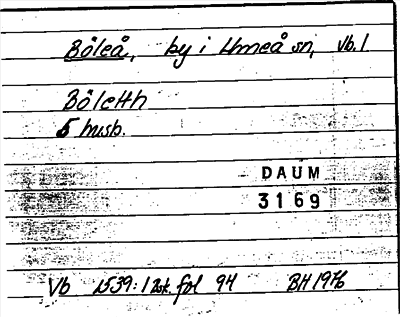 Böleå, by i Umeå sn, Vb. l.
Böletth
5 husb.
DAUM
3169
Vb 1539: 1 Zsk. fol 94 BH 1976